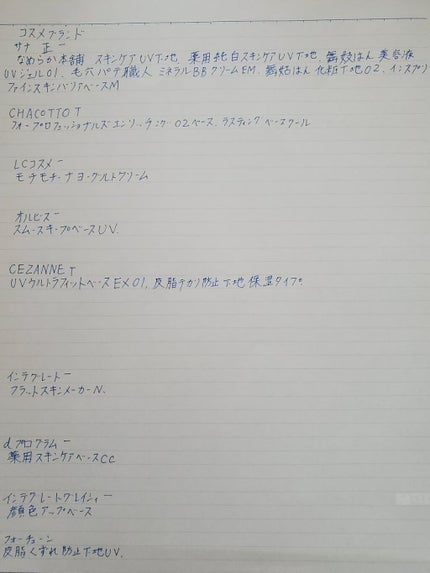 コスメブランド
サナ 正一
なめらか本舗 スキンケアUV下地, 薬用純白スキンケアUV下地, 舞妓はん 美容液
UVジェル01, 毛穴パテ職人 ミネラルBBクリームEM, 舞妓はん 化粧下地02, インスプリ
ファインスキンバリアベースM
CHACOTT T
フォープロフェッショナルズエンリッチング02ベース, ラスティングベースクール
LCコスメ 一
モチモチーナヨーグルトクリーム
オルビス 一
スムースキープベースUV.
CEZANNE T
UVウルトラフィットベースEX01, 皮脂テカリ防止下地 保湿タイプ
インテグレート 一
フラットスキンメーカーN.
dプログラム 一
薬用スキンケアベースCC
インテグレートグレイシィ 一
顔色アップベース
フォーチューン
皮脂くずれ防止下地UV.